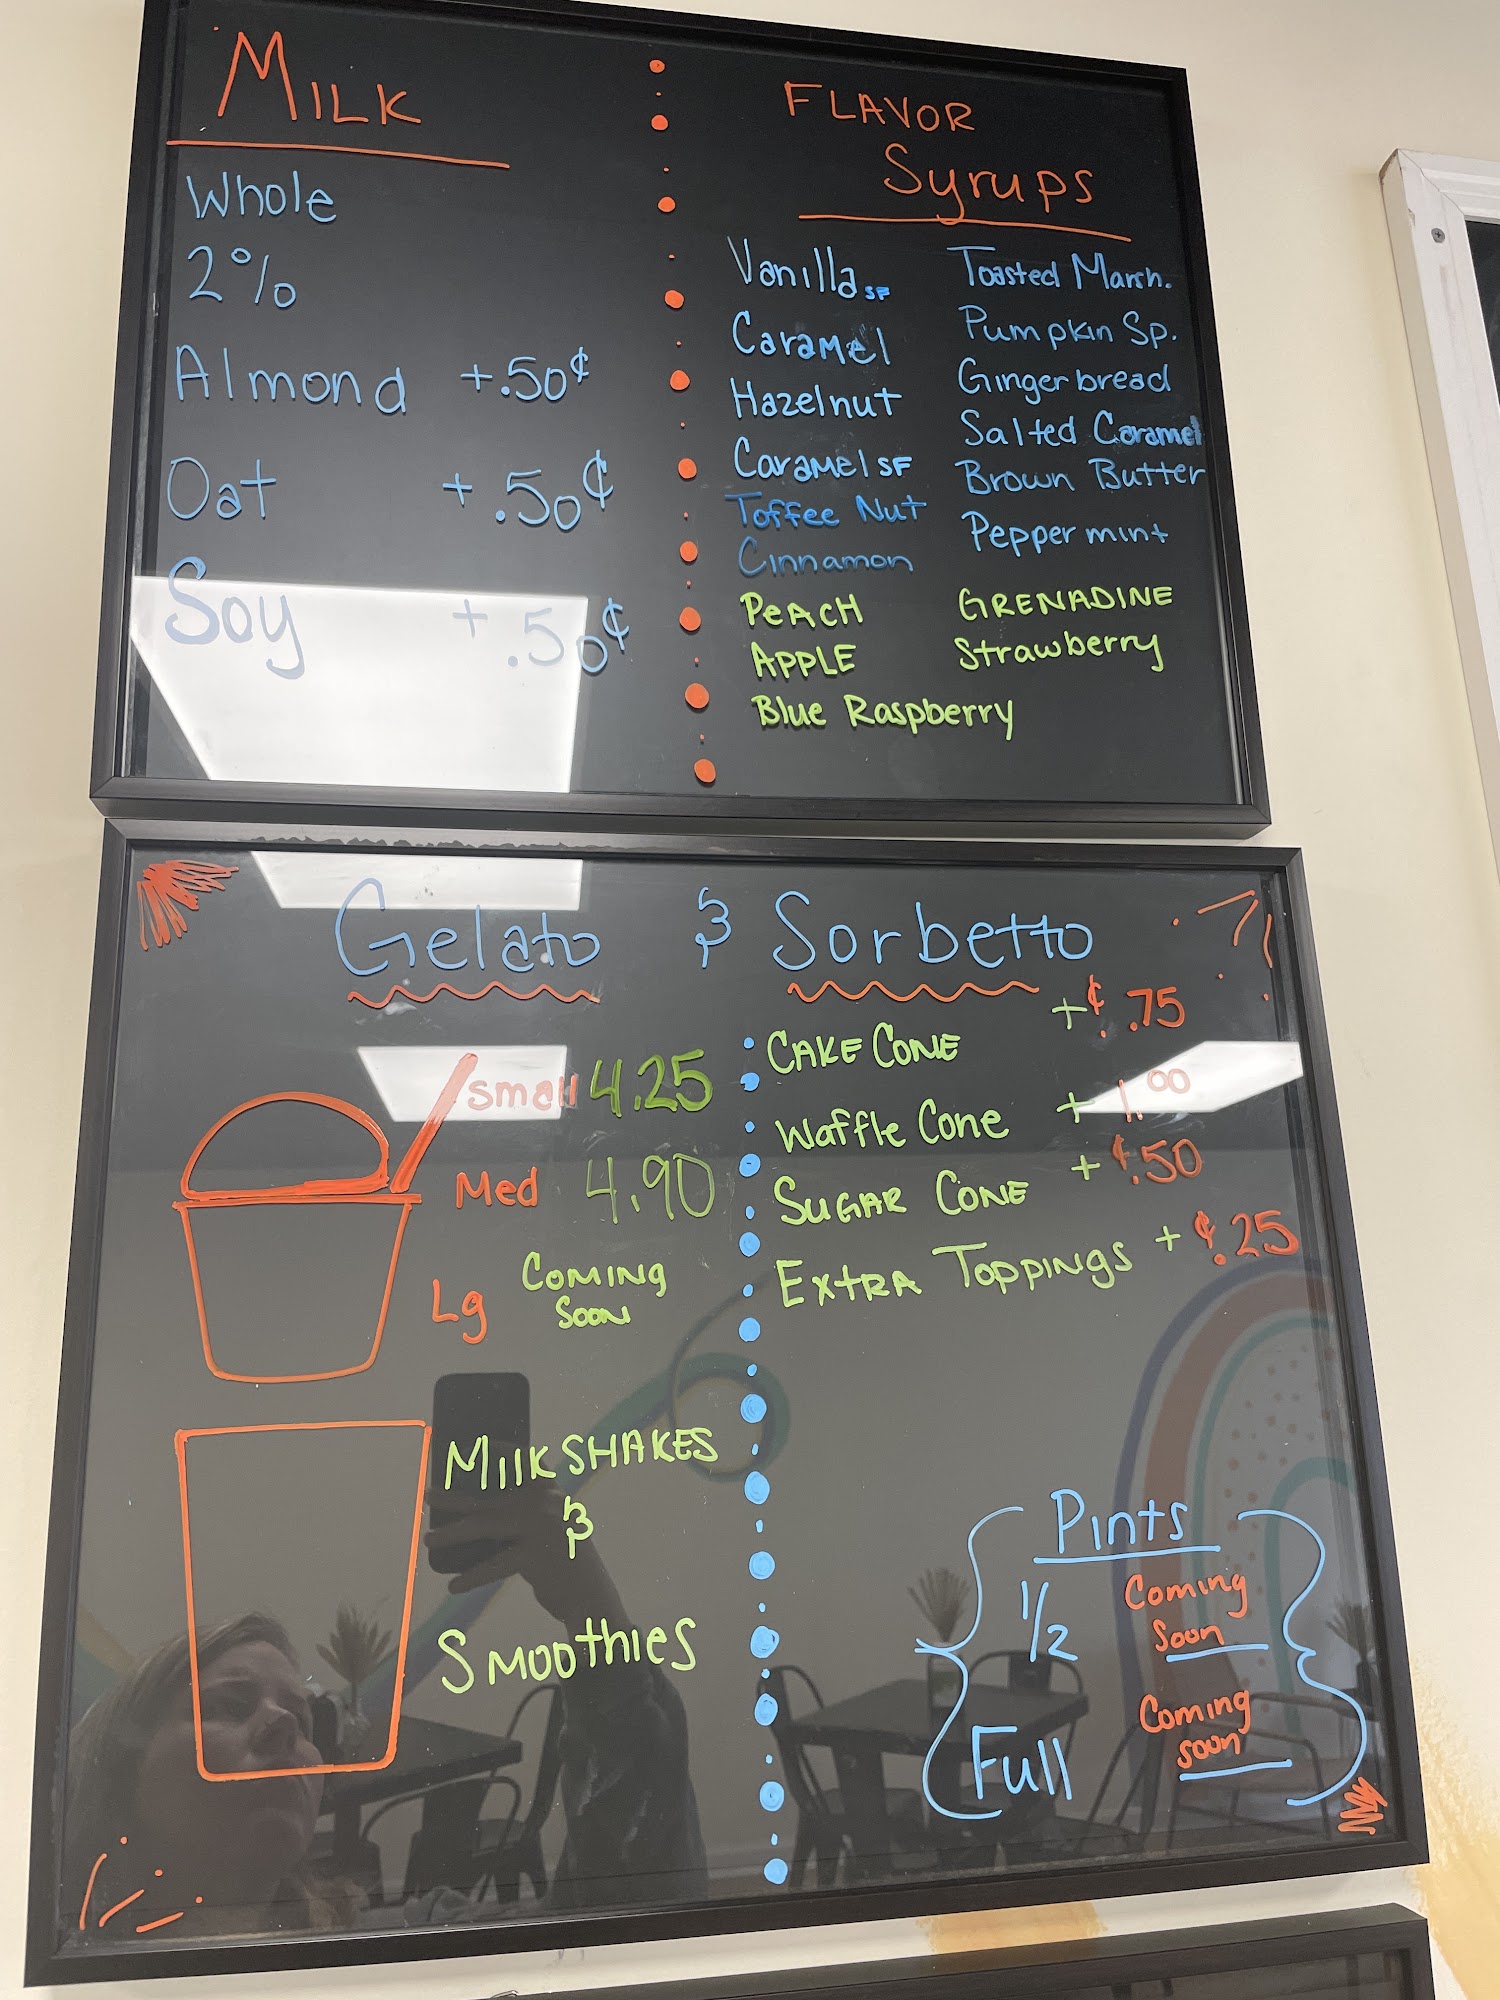 MILK
Whole
2%
Almond +.50¢
Oat +.50¢
Soy +.50¢
FLAVOR
Syrups
Vanilla SF
Caramel
Hazelnut
Caramel SF
Toffee Nut
Cinnamon
PEACH
APPLE
Blue Raspberry
Toasted Marsh.
Pumpkin Sp.
Gingerbread
Salted Caramel
Brown Butter
Peppermint
GRENADINE
Strawberry
Gelato & Sorbetto
small 4.25
Med 4.90
Lg COMING
SOON
MILKSHAKES
&
SMOOTHIES
CAKE CONE +¢.75
Waffle Cone +1.00
SUGAR CONE +¢.50
EXTRA TOPPINGS +¢.25
Pints
1/2 Coming
Soon
Full Coming
soon